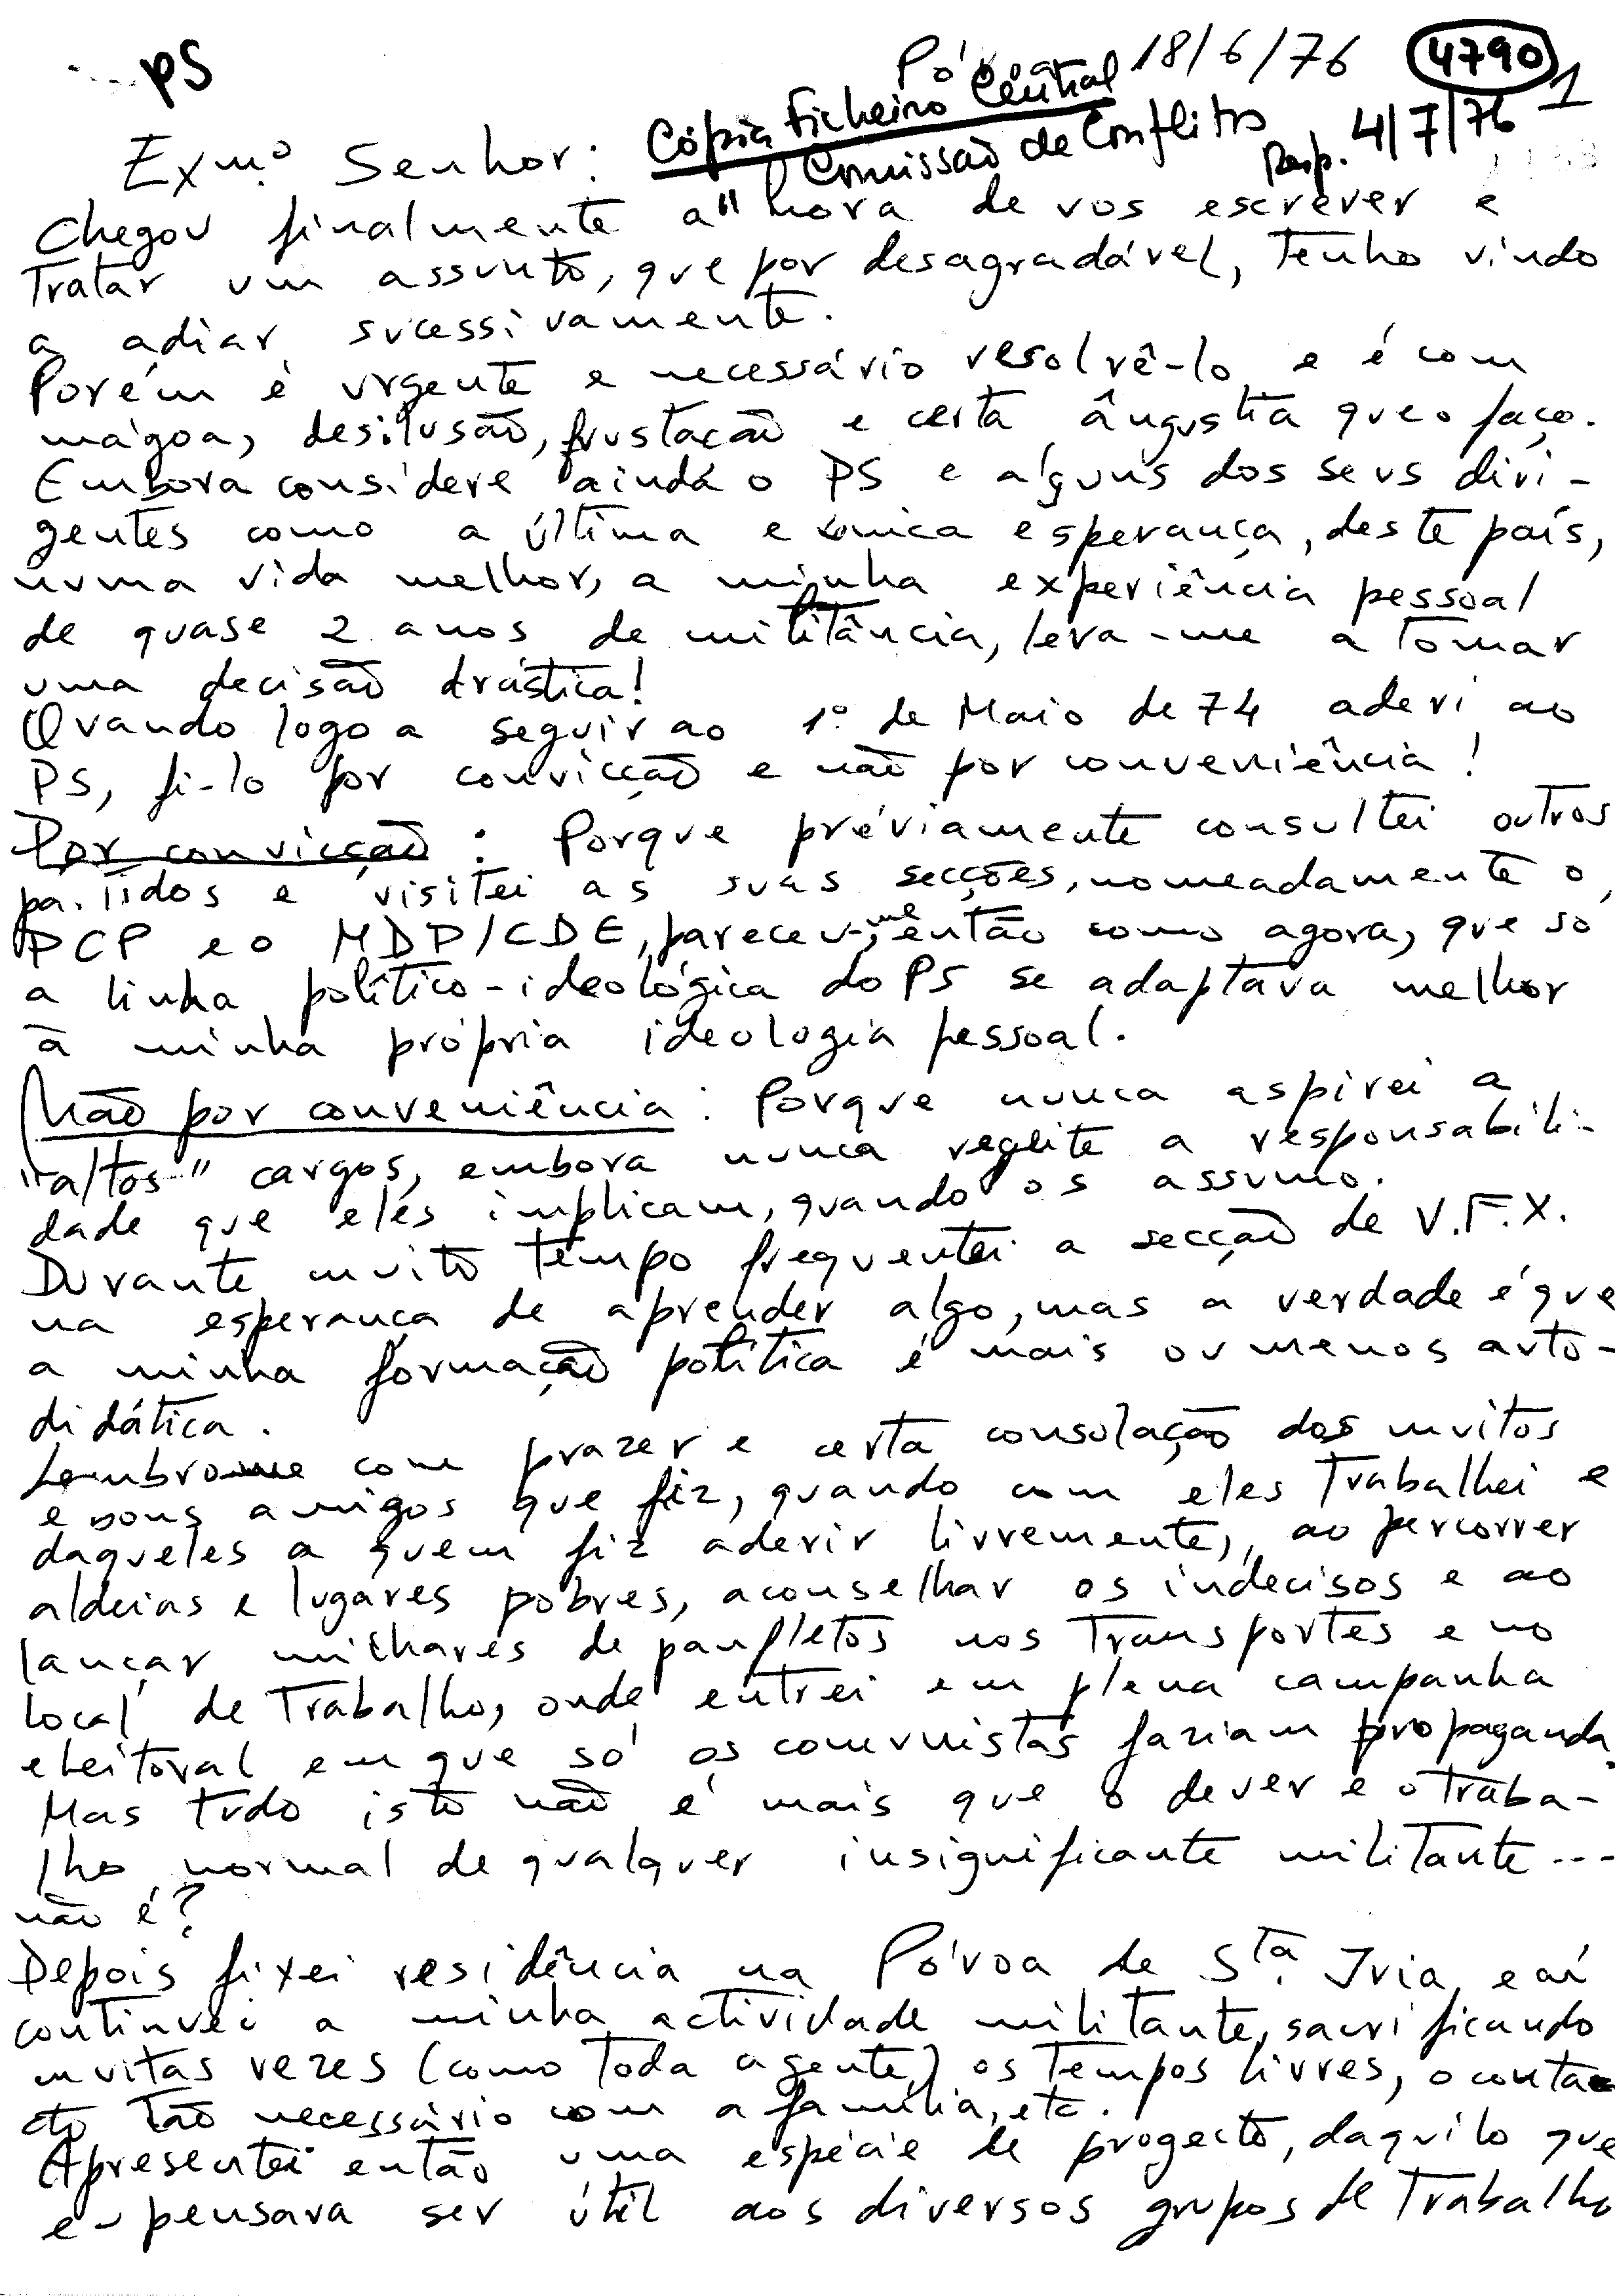 PS
18/6/76 4790 1
Cópia Ficheiro Central
" Comissão de Conflitos
Resp. 4/7/76
Exmº. Senhor:
Chegou finalmente a hora de vos escrever e
tratar um assunto, que por desagradável, tenho vindo
a adiar sucessivamente.
Porém é urgente e necessário resolvê-lo e é com
mágoa, desilusão, frustacão e certa ângustia que o faço.
Embora considere ainda o PS e alguns dos seus diri-
gentes como a última e única esperança, deste país,
numa vida melhor, a minha experiência pessoal
de quase 2 anos de militância, leva-me a tomar
uma decisão drástica!
Quando logo a seguir ao 1º de Maio de 74 aderi ao
PS, fi-lo por convicção e não por conveniência!
Por convicção: Porque préviamente consultei outros
partidos e visitei as suas secções, nomeadamente o
PCP e o MDP/CDE, pareceu-me, então como agora, que só
a linha político-ideológica do PS se adaptava melhor
à minha própria ideologia pessoal.
Não por conveniência: Porque nunca aspirei a
"altos" cargos, embora nunca regeite a responsabili-
dade que eles implicam, quando os assumo.
Durante muito tempo frequentei a secção de V.F.X.
na esperança de aprender algo, mas a verdade é que
a minha formação política é mais ou menos auto-
didática.
Lembro-me com prazer e certa consolação dos muitos
e bons amigos que fiz, quando com eles trabalhei e
daqueles a quem fiz aderir livremente, ao percorrer
aldeias e lugares pobres, aconselhar os indecisos e ao
lançar milhares de panfletos nos transportes e no
local de trabalho, onde entrei em plena campanha
eleitoral em que só os comunistas faziam propaganda.
Mas tudo isto não é mais que o dever e o traba-
lho normal de qualquer insignificante militante...
não é?
Depois fixei residência na Póvoa de Stª. Iria e aí
continuei a minha actividade militante, sacrificando
muitas vezes (como toda a gente) os tempos livres, o conta
cto tão necessário com a família, etc.
Apresentei então uma espécie de progecto, daquilo que
eu pensava ser útil aos diversos grupos de trabalho